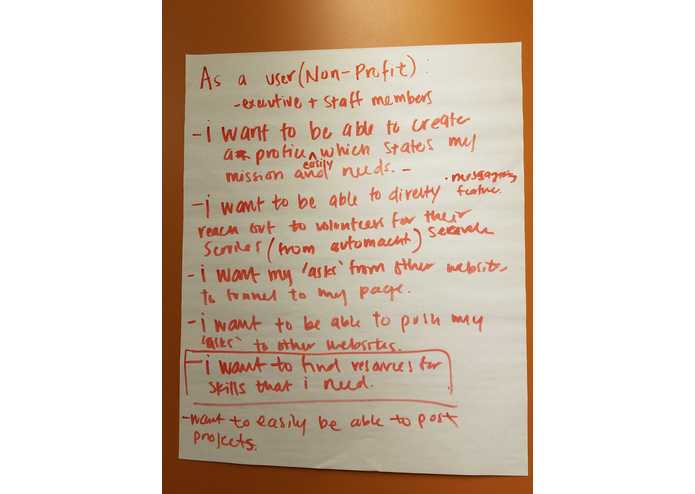 As a user (Non-Profit):
- executive + staff members
- i want to be able to create
a profile which states my
easily
mission and needs. -
- i want to be able to directly
• messaging
feature.
reach out to volunteers for their
services (from automacht) search
- i want my 'asks' from other websites
to funnel to my page.
- i want to be able to push my
'asks' to other websites.
- i want to find resources for
skills that i need.
- want to easily be able to post
projects.